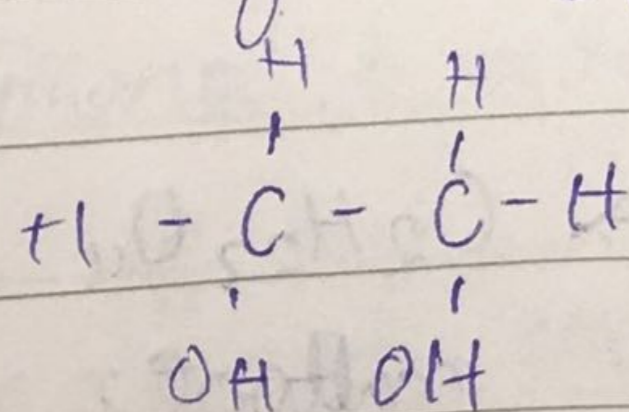 H H
H - C - C - H
OH OH